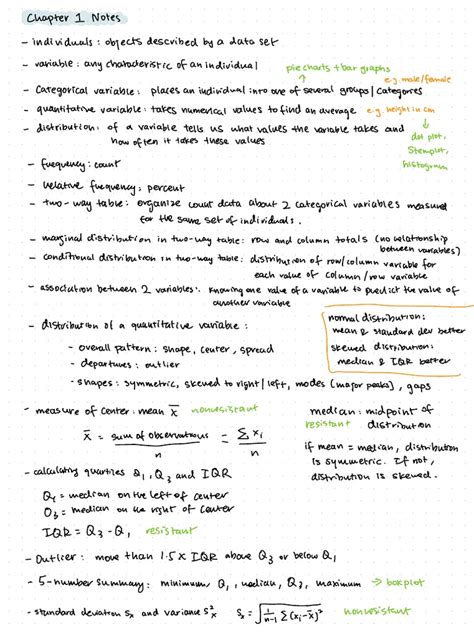 Chapter 1 Notes
- individuals: objects described by a data set
- variable: any characteristic of an individual
pie charts + bar graphs
e.g. male/female
- Categorical variable: places an individual into one of several groups/categories
- quantitative variable: takes numerical values to find an average e.g. height in cm
- distribution: of a variable tells us what values the variable takes and
how often it takes these values
dot plot,
stemplot,
histogram
- frequency: count
- relative frequency: percent
- two-way table: organize count data about 2 categorical variables measured
for the same set of individuals.
- marginal distribution in two-way table: row and column totals (no relationship
between variables)
- conditional distribution in two-way table: distribution of row/column variable for
each value of column/row variable
- association between 2 variables: knowing one value of a variable to predict the value of
another variable
- distribution of a quantitative variable:
- overall pattern: shape, center, spread
- departures: outlier
- shapes: symmetric, skewed to right/left, modes (major peaks), gaps
normal distribution:
mean & standard dev better
skewed distribution:
median & IQR better
- measure of center: mean x̄ nonresistant
x̄ = sum of observations / n = Σxi / n
median: midpoint of
resistant distribution
if mean = median, distribution
is symmetric. If not,
distribution is skewed.
- calculating quartiles Q1, Q3 and IQR
Q1 = median on the left of center
Q3 = median on the right of center
IQR = Q3 - Q1 resistant
- Outlier: more than 1.5 x IQR above Q3 or below Q1
- 5-number summary: minimum, Q1, median, Q3, maximum → boxplot
- standard deviation Sx and variance Sx² Sx = √(1/(n-1) Σ(xi-x̄)²) nonresistant